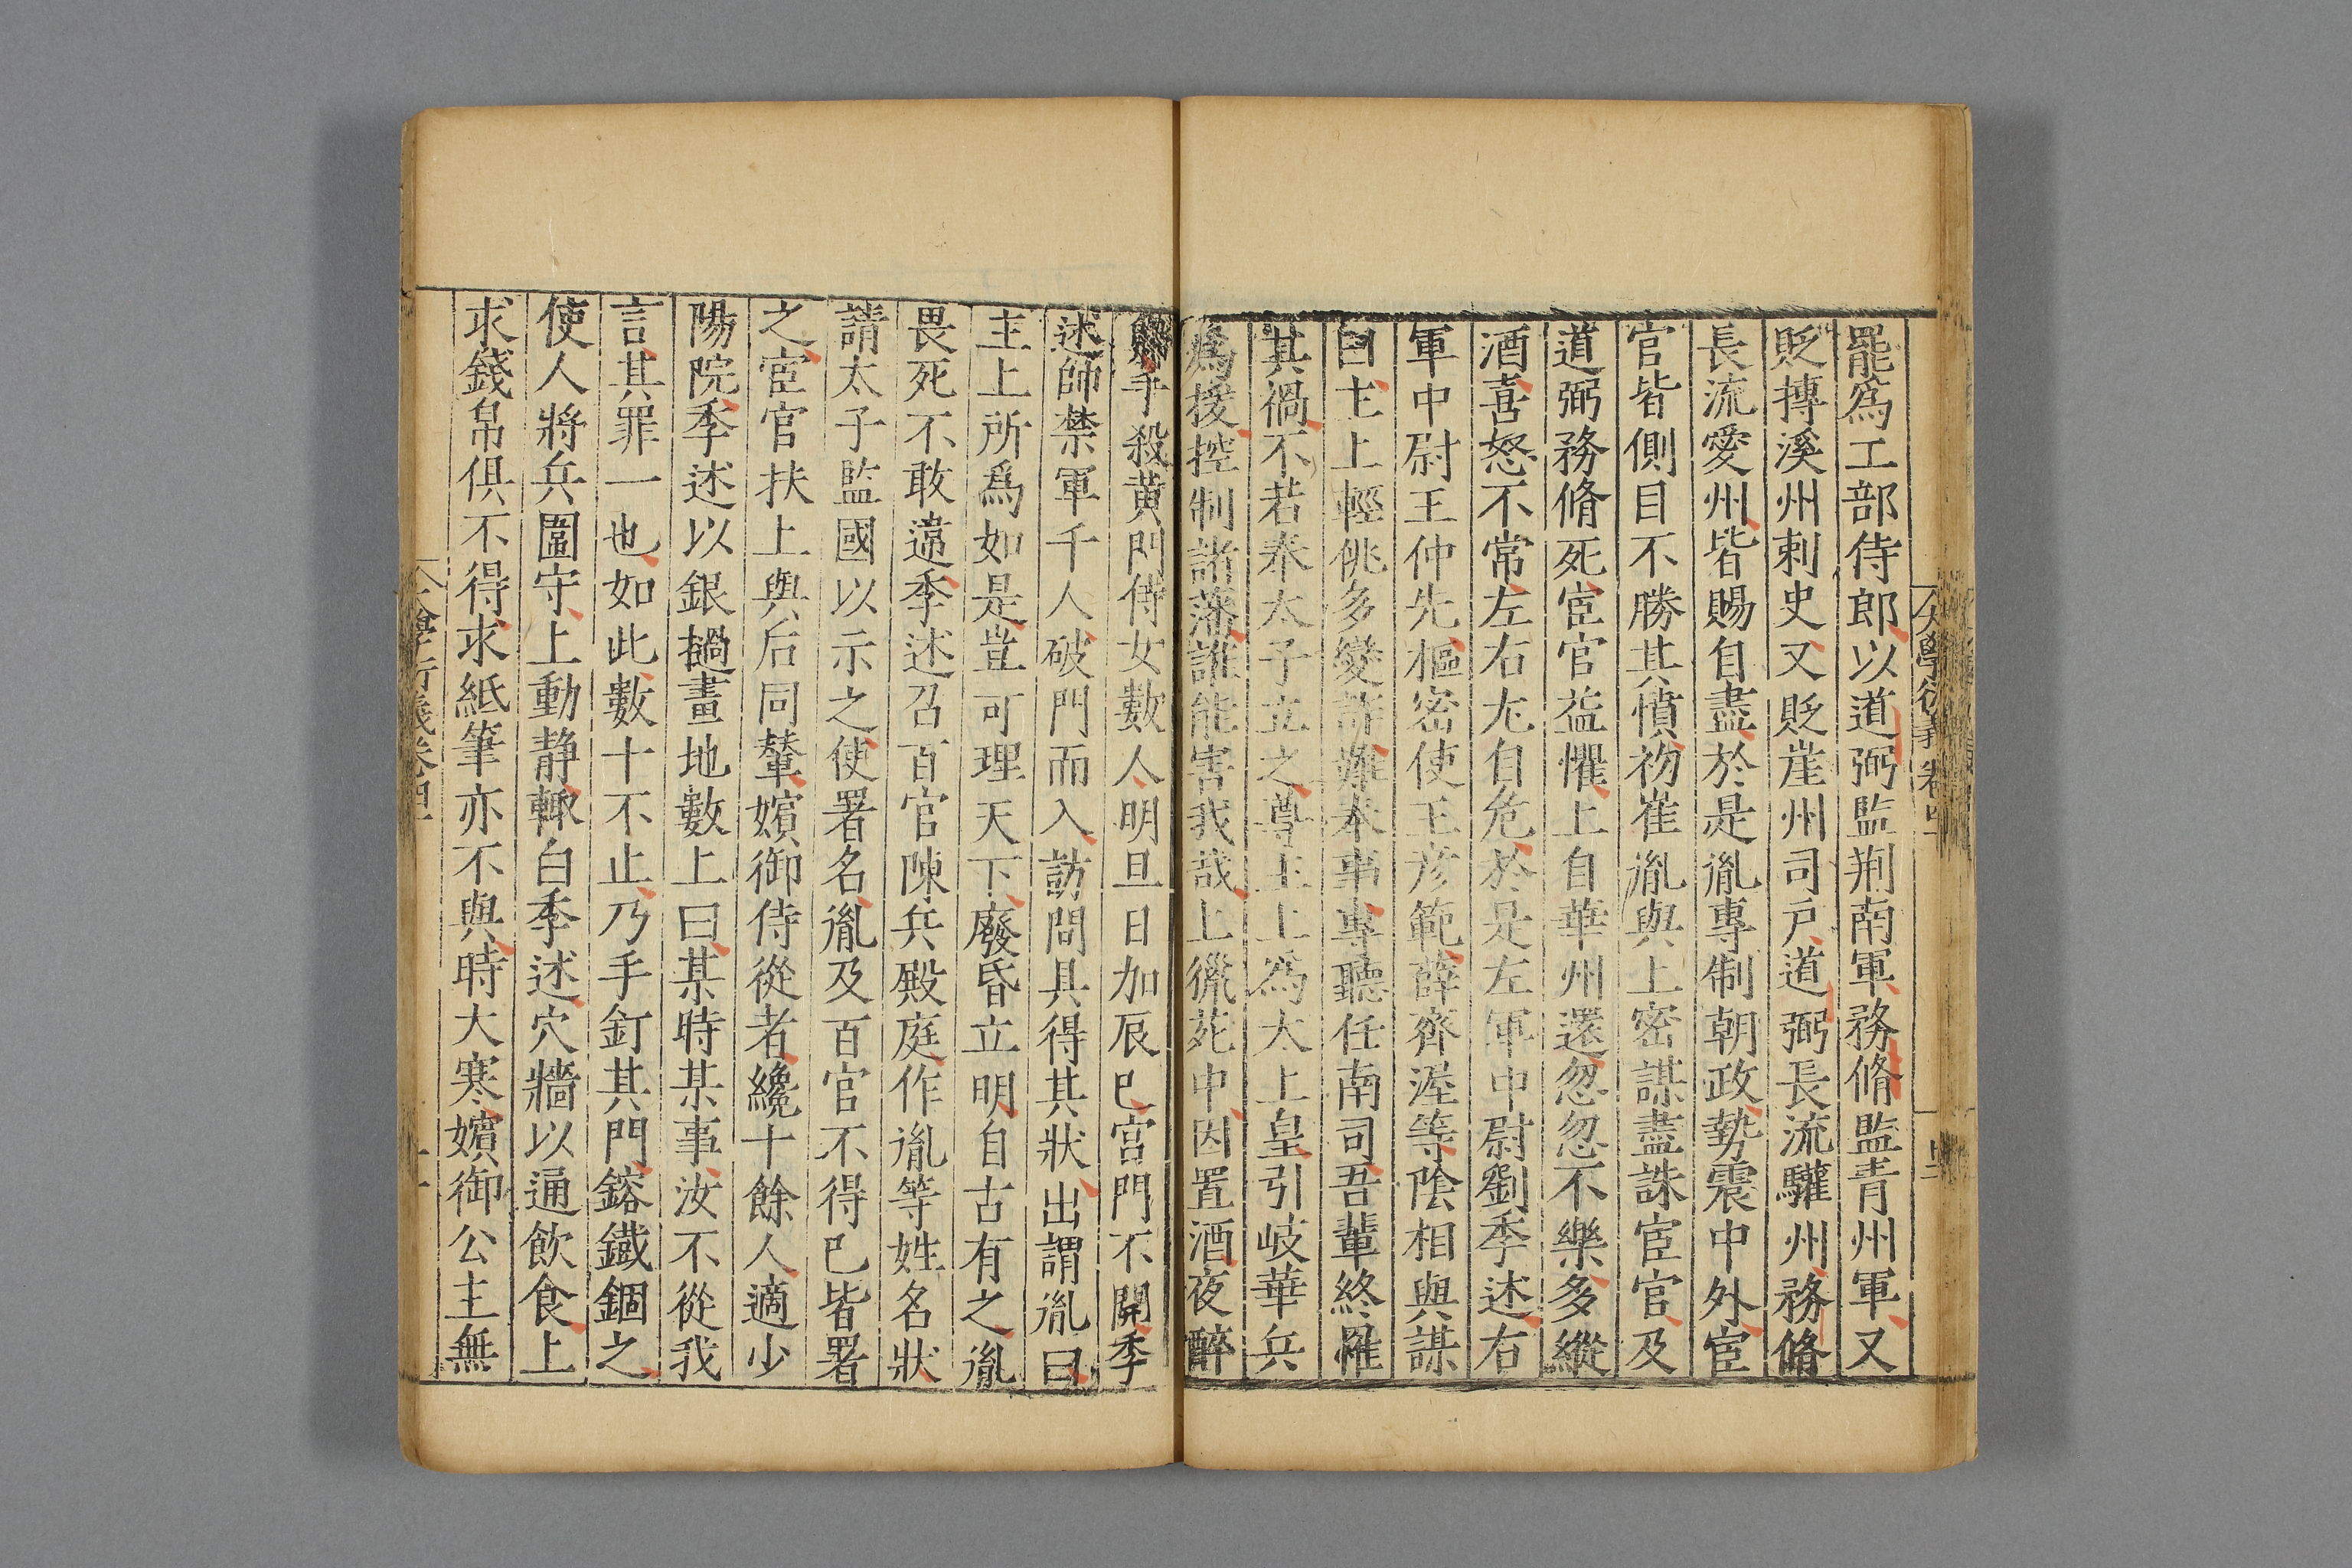 罷爲工部侍郎以道弼監荆南軍務脩監青州軍又
貶摶溪州刺史又貶崖州司戶道弼長流驩州務脩
長流愛州皆賜自盡於是胤專制朝政勢震中外宦
官皆側目不勝其憤初崔胤與上密謀盡誅宦官及
道弼務脩死宦官益懼上自華州還忽忽不樂多縱
酒喜怒不常左右尤自危於是左軍中尉劉季述右
軍中尉王仲先樞密使王彦範薛齊渥等陰相與謀
曰主上輕佻多變詐難奉事專聽任南司吾輩終罹
其禍不若奉太子立之尊主上爲太上皇引岐華兵
爲援控制諸藩誰能害我哉上獵苑中因置酒夜醉
歸手殺黄門侍女數人明旦日加辰巳宮門不開季
述師禁軍千人破門而入訪問具得其狀出謂胤曰
主上所爲如是豈可理天下廢昏立明自古有之胤
畏死不敢違季述召百官陳兵殿庭作胤等姓名狀
請太子監國以示之使署名胤及百官不得已皆署
之宦官扶上與后同輦嬪御侍從者纔十餘人適少
陽院季述以銀撾畫地數上曰某時某事汝不從我
言其罪一也如此數十不止乃手釘其門鎔鐵錮之
使人將兵圍守上動静輙白季述穴牆以通飲食上
求錢帛俱不得求紙筆亦不與時大寒嬪御公主無